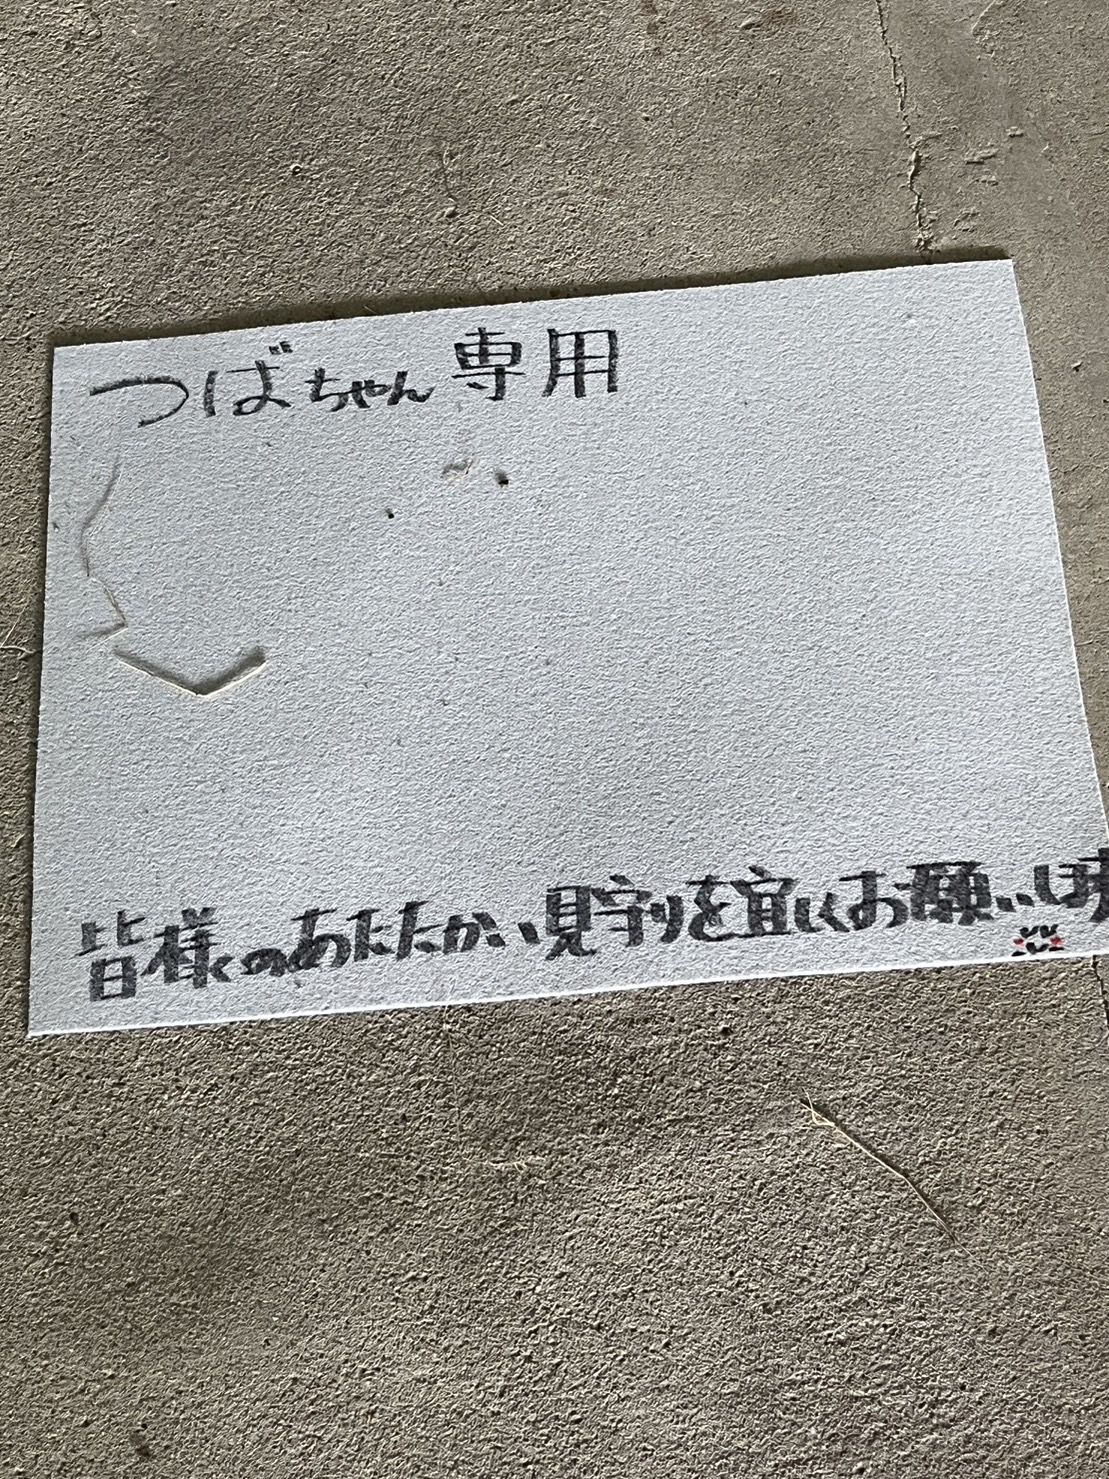 つばちゃん専用
皆様のあたたかい見守りを宜しくお願いしま